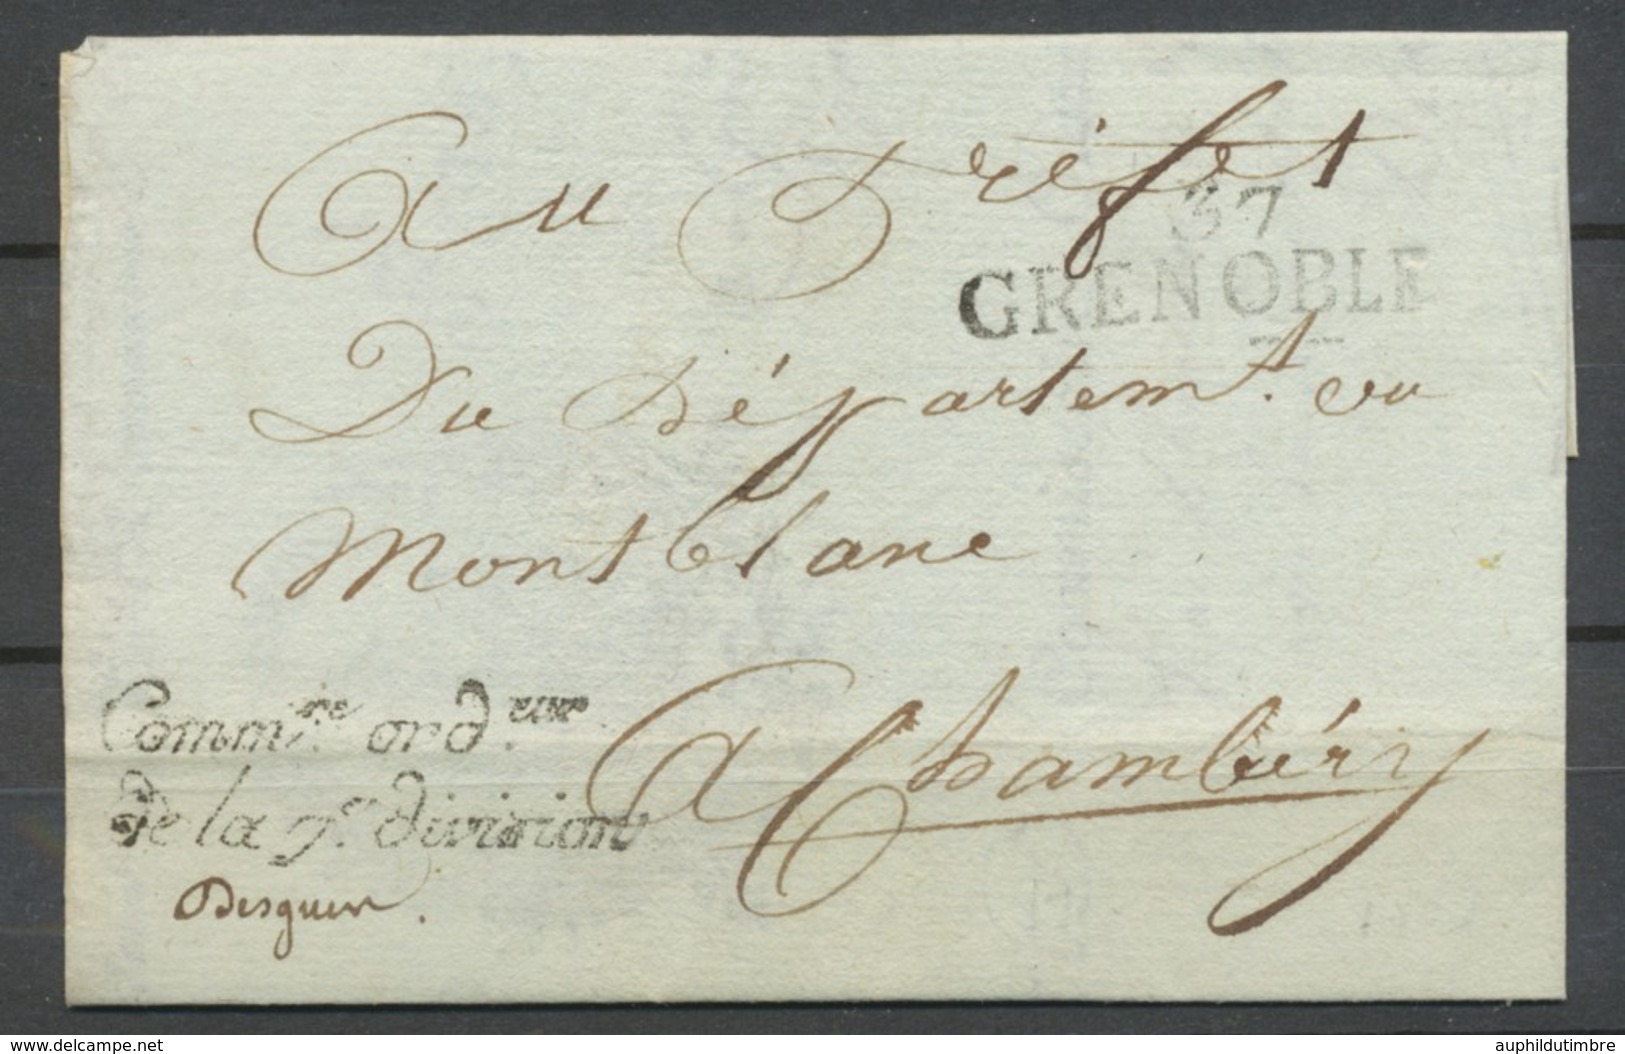 Au Préfet
37
GRENOBLE
Du Départem.t du
Montblanc
Comm.re ord.eur
de la 7.e division
A Chambéry
delcampe.net
auphildutimbre